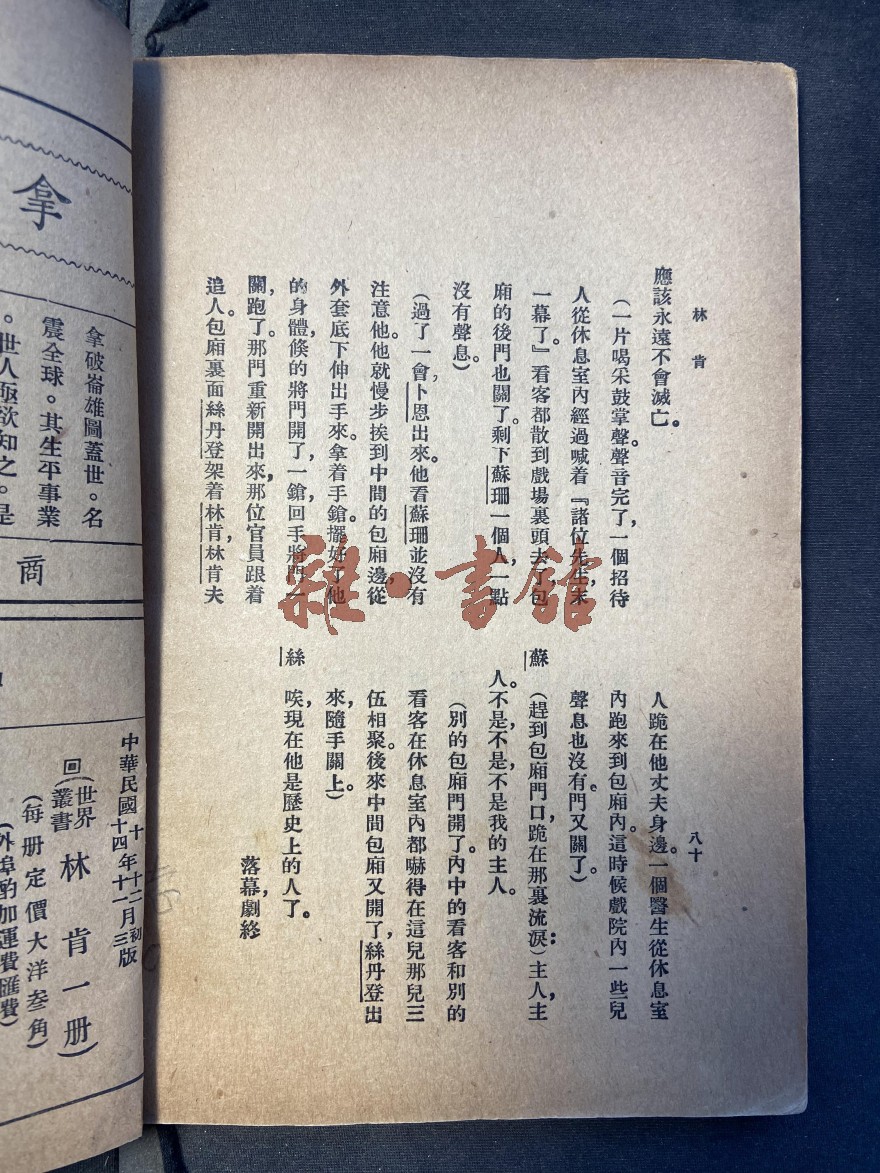 林肯
八十
應該永遠不會滅亡。
(一片喝采鼓掌聲。聲音完了,一個招待
人從休息室內經過喊着『諸位先生,末
一幕了。』看客都散到戲場裏頭去了。包
廂的後門也關了。剩下蘇珊一個人,一點
沒有聲息。)
(過了一會,卜恩出來。他看蘇珊並沒有
注意他。他就慢步挨到中間的包廂邊,從
外套底下伸出手來。拿着手鎗。擺好了他
的身體,倏的將門開了,一鎗,回手將門一
關,跑了。那門重新開出來,那位官員跟着
追人。包廂裏面絲丹登架着林肯,林肯夫
人跪在他丈夫身邊。一個醫生從休息室
內跑來到包廂內。這時候戲院內一些兒
聲息也沒有。門又關了。)
蘇 (趕到包廂門口,跪在那裏流淚:)主人,主
人。不是,不是,不是我的主人。
(別的包廂門開了。內中的看客和別的
看客在休息室內都嚇得在這兒那兒三
伍相聚。後來中間包廂又開了,絲丹登出
來,隨手關上。)
絲 唉,現在他是歷史上的人了。
落幕,劇終
雜·書館
拿
拿破崙雄圖蓋世。名
震全球。其生平事業
。世人極欲知之。是
商
中華民國十年十二月初版
十四年十一月三版
回(世界叢書林肯一册)
(每册定價大洋叁角)
(外埠酌加運費匯費)